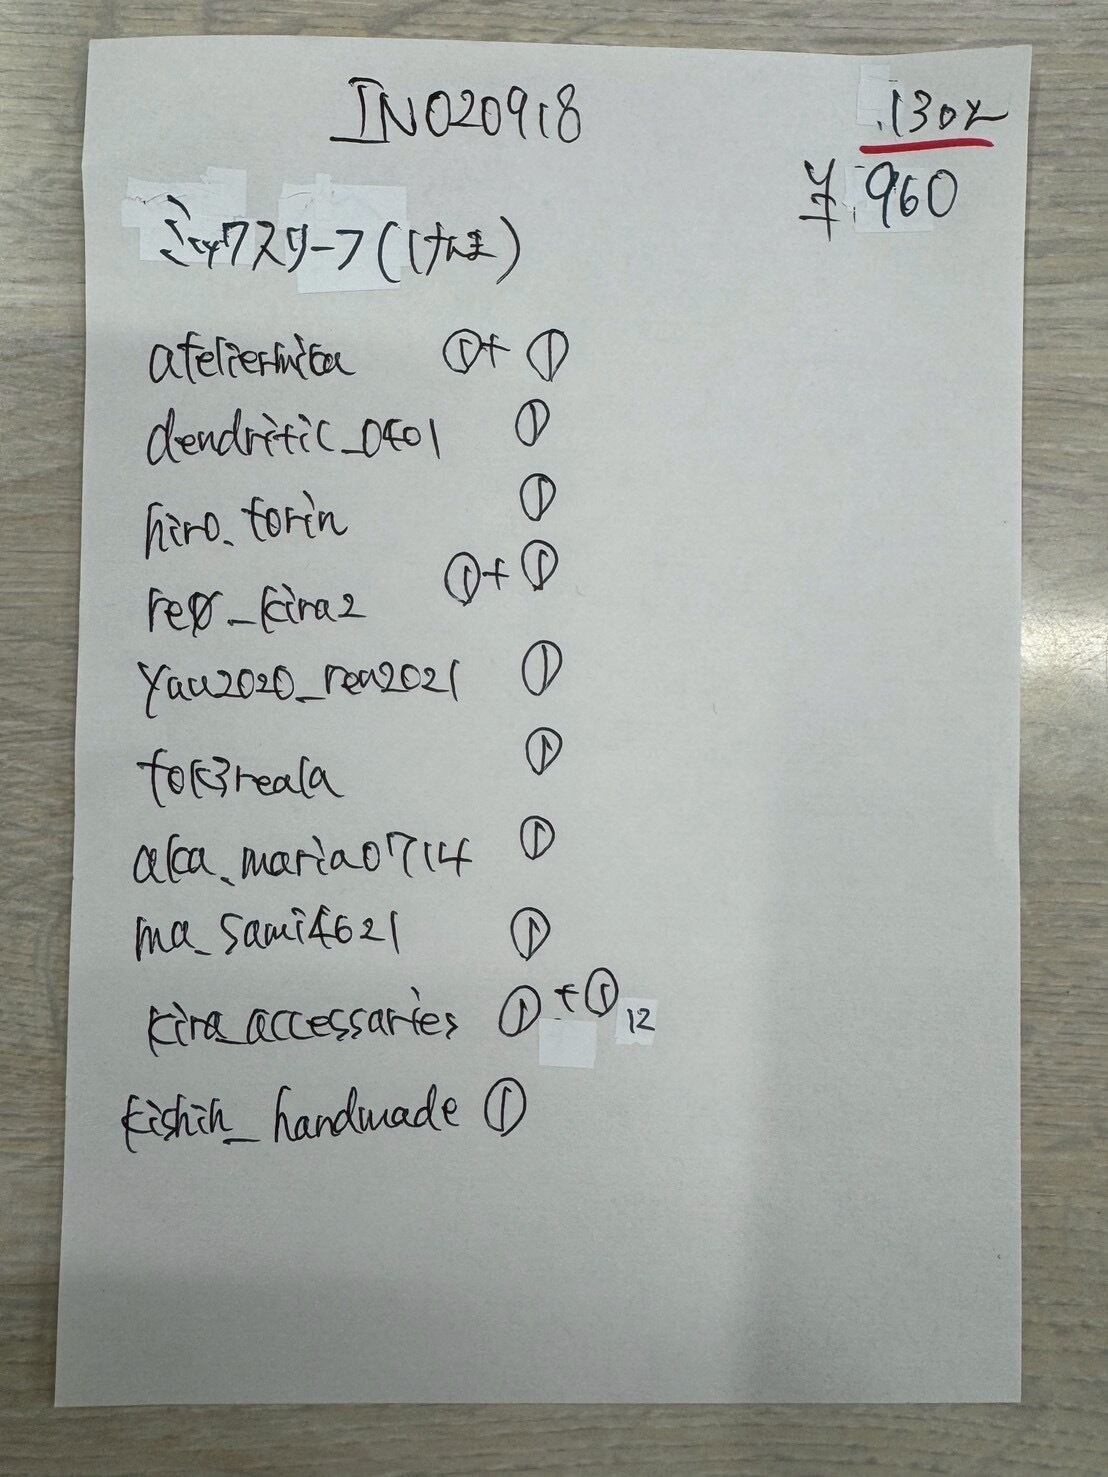 INO20918
130と
¥960
ミックスリーフ(けんま)
ateliermica ①+①
dendritic_0401 ①
hiro.torin ①
reo_kira2 ①+①
yau2020_rea2021 ①
tok3reala ①
aka.maria0714 ①
ma_sami4621 ①
kira_accessaries ①+① 12
kishih_handmade ①